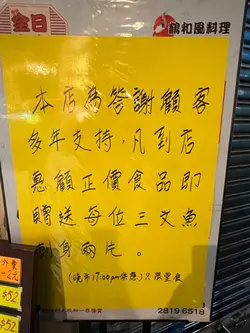 全日
鶴和風料理
本店為答謝顧客
多年支持，凡到店
惠顧正價食品即
贈送每位三文魚
刺身兩片。
(晚市17:00pm供應)只限堂食
2819 6518
$52
$52